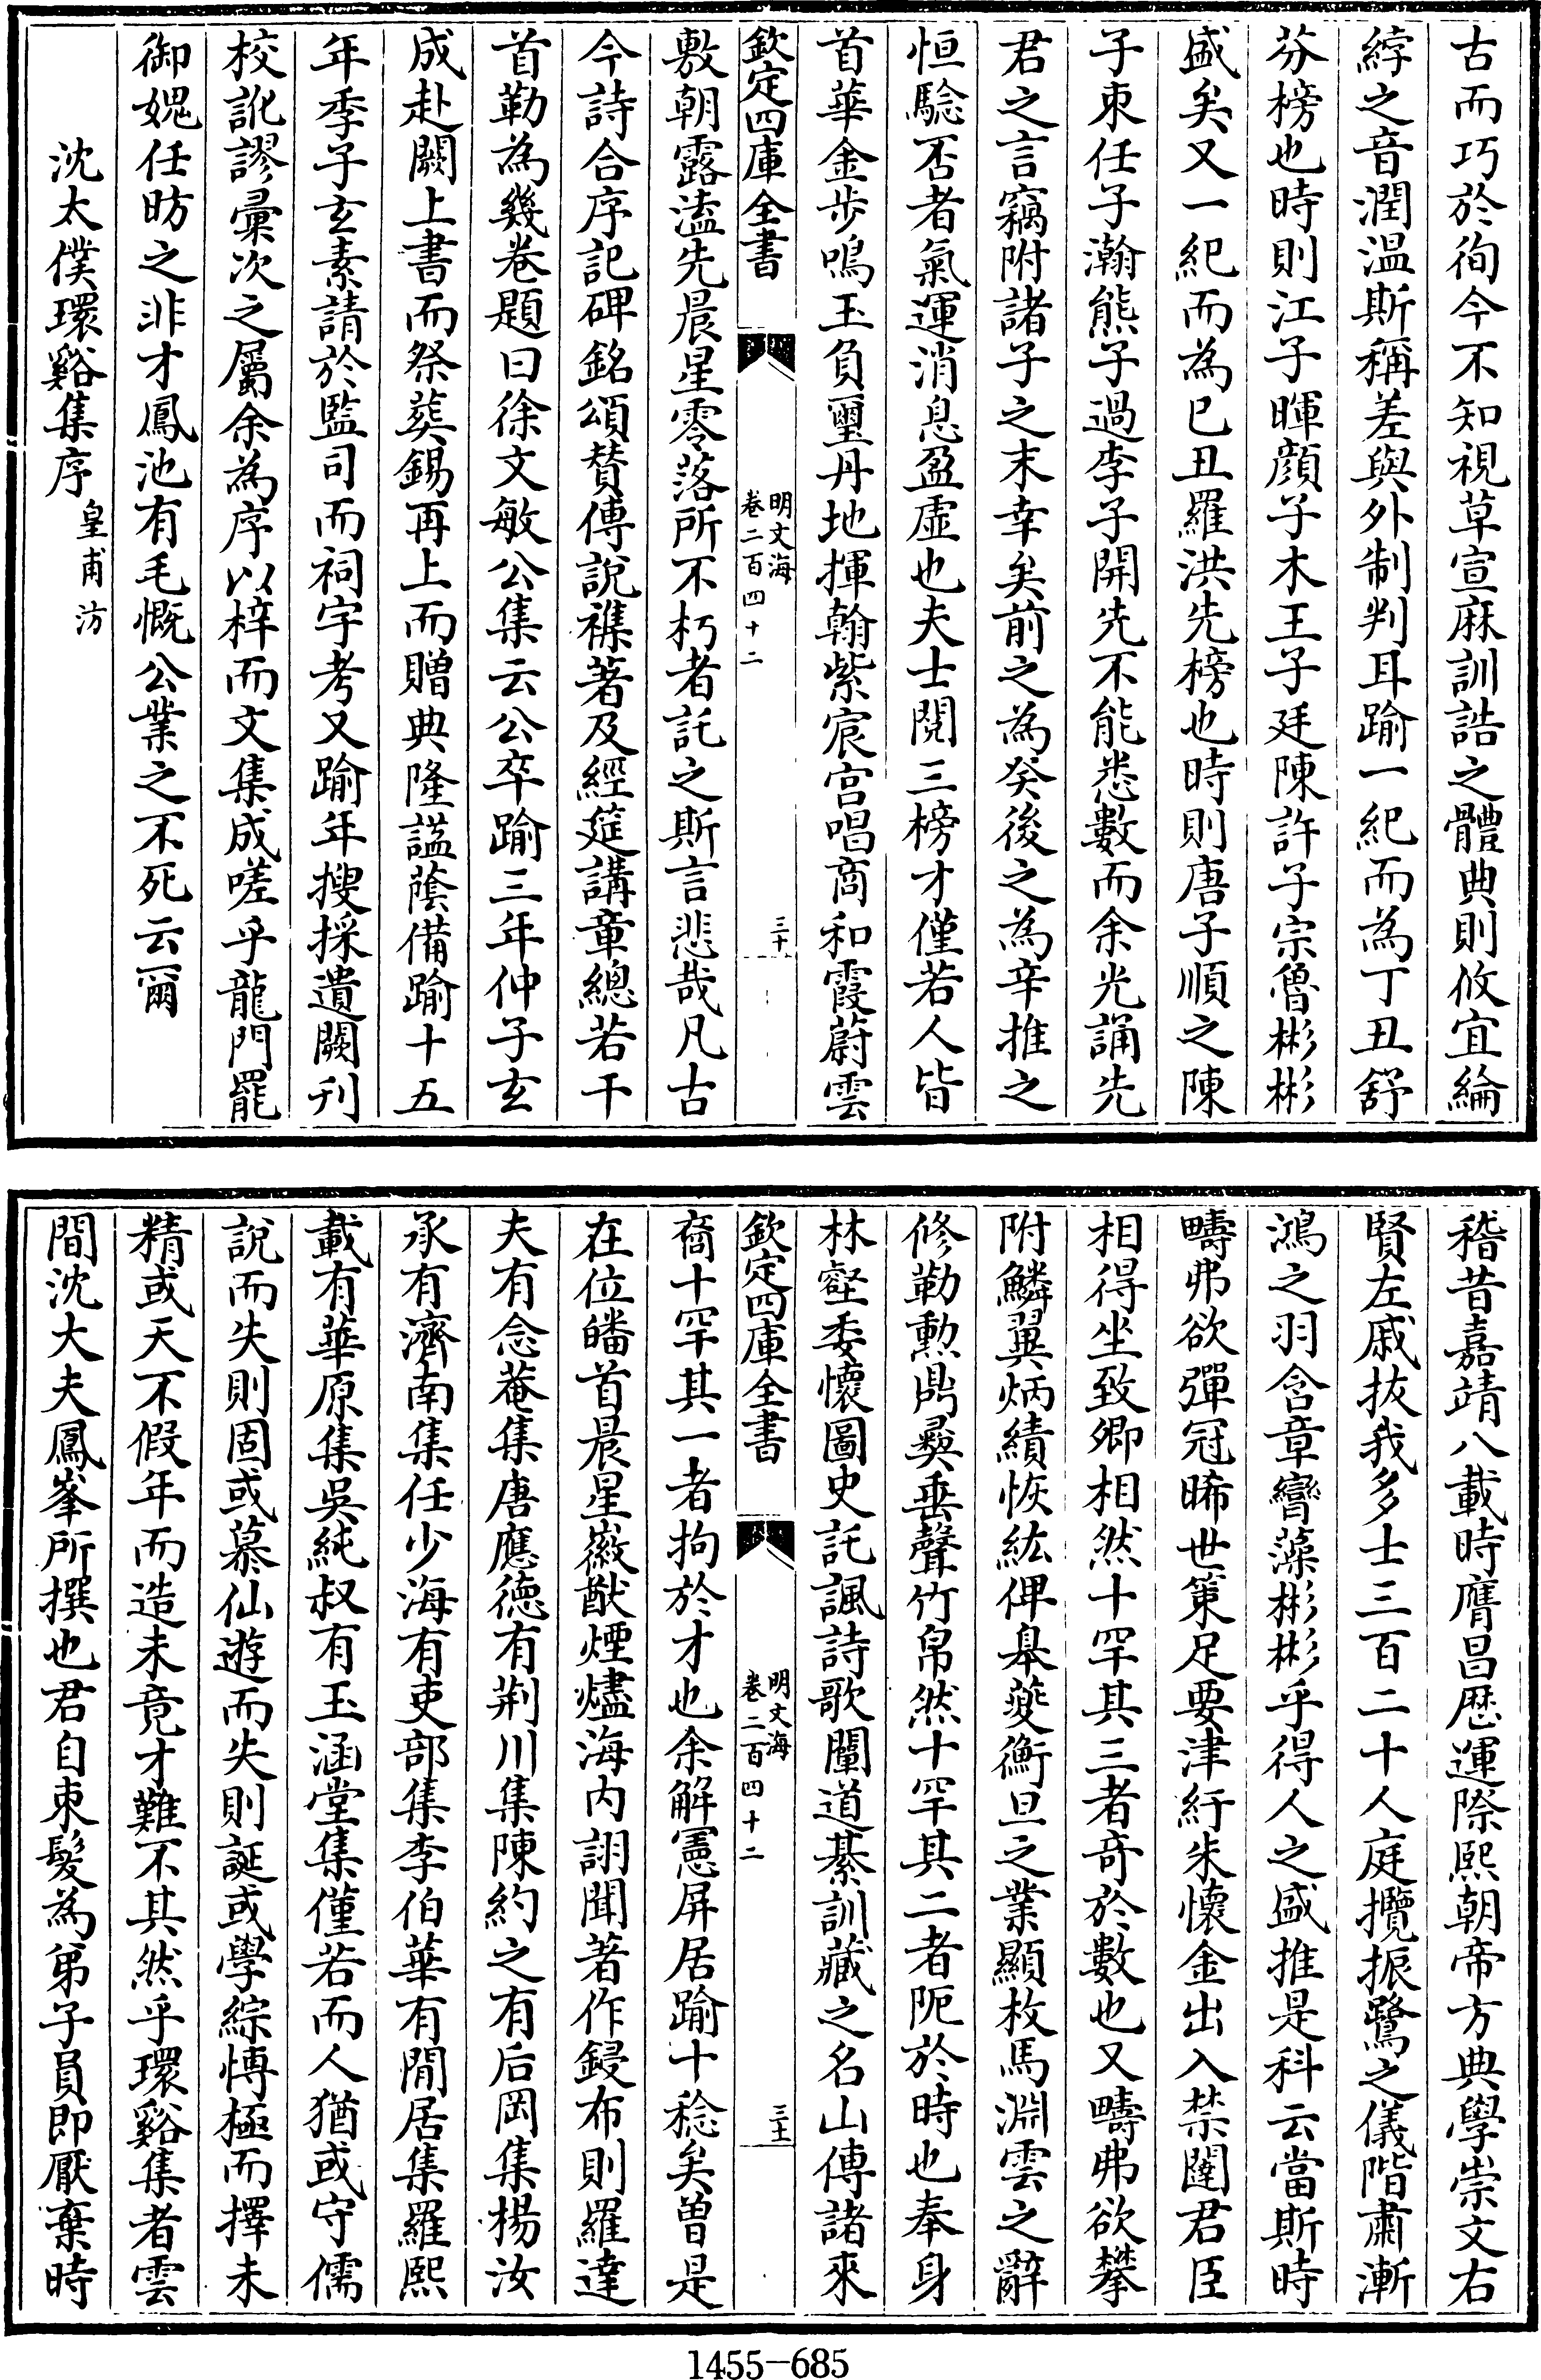 古而巧於徇今不知視草宣麻訓誥之體典則攸宜綸
綍之音潤温斯稱差與外制判耳踰一紀而為丁丑舒
芬榜也時則江子暉顔子木王子廷陳許子宗魯彬彬
盛矣又一紀而為已丑羅洪先榜也時則唐子順之陳
子束任子瀚熊子過李子開先不能悉數而余光誦先
君之言竊附諸子之末幸矣前之為癸後之為辛推之
恒騐否者氣運消息盈虚也夫士閱三榜才僅若人皆
首華金步鳴玉負璽丹地揮翰紫宸宫唱商和霞蔚雲
欽定四庫全書
明文海
卷二百四十二
三十
敷朝露溘先晨星零落所不朽者託之斯言悲哉凡古
今詩合序記碑銘頌賛傳說襍著及經筵講章總若干
首勒為幾卷題曰徐文敏公集云公卒踰三年仲子玄
成赴闕上書而祭葬錫再上而贈典隆謚蔭備踰十五
年季子玄素請於監司而祠宇考又踰年搜採遺闕刋
校訛謬彚次之屬余為序以梓而文集成嗟乎龍門罷
御媿任昉之非才鳳池有毛慨公業之不死云爾
沈太僕環谿集序
皇甫汸
稽昔嘉靖八載時膺昌厯運際熙朝帝方典學崇文右
賢左戚拔我多士三百二十人庭攬振鷺之儀階肅漸
鴻之羽含章𢺞藻彬彬乎得人之盛推是科云當斯時
疇弗欲彈冠晞世策足要津紆朱懐金出入禁闥君臣
相得坐致卿相然十罕其三者竒於數也又疇弗欲攀
附鱗翼炳績恢紘俾臯夔衡旦之業顯枚馬淵雲之辭
修勒勲鼎彛垂聲竹帛然十罕其二者阨於時也奉身
林壑委懷圖史託諷詩歌闡道綦訓藏之名山傳諸來
欽定四庫全書
明文海
卷二百四十二
三十一
裔十罕其一者拘於才也余解憲屏居踰十稔矣曽是
在位皤首晨星徽猷煙燼海内詡聞著作鋟布則羅達
夫有念菴集唐應德有荆川集陳約之有后岡集楊汝
承有濟南集任少海有吏部集李伯華有閒居集羅熙
載有華原集吳純叔有玉涵堂集僅若而人猶或守儒
說而失則固或慕仙遊而失則誕或學綜愽極而擇未
精或天不假年而造未竟才難不其然乎環谿集者雲
間沈大夫鳳峯所撰也君自束髮為弟子員即厭棄時
1455—685